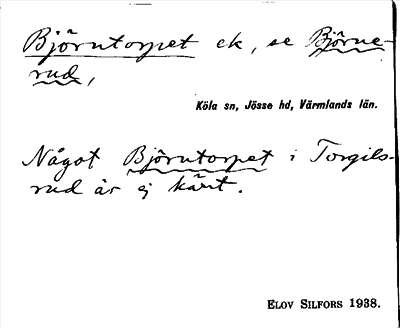 Björntorpet ek, se Björne-
rud,
Köla sn, Jösse hd, Värmlands län.
Något Björntorpet i Torgils-
rud är ej känt.
ELOV SILFORS 1938.